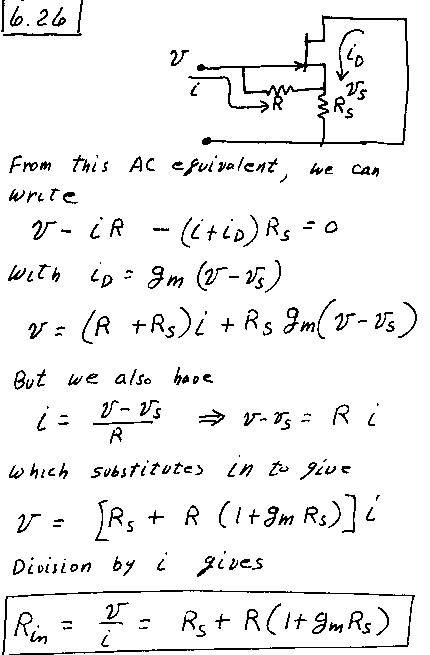 6.26
v
i
R
i_D
v_s
R_s
From this AC equivalent, we can
write
v - iR - (i+i_D) R_s = 0
with i_D = g_m (v-v_s)
v = (R + R_s)i + R_s g_m(v-v_s)
But we also have
i = (v-v_s)/R ⇒ v-v_s = R i
which substitutes in to give
v = [R_s + R (1+g_m R_s)] i
Division by i gives
R_in = v/i = R_s + R(1+g_m R_s)